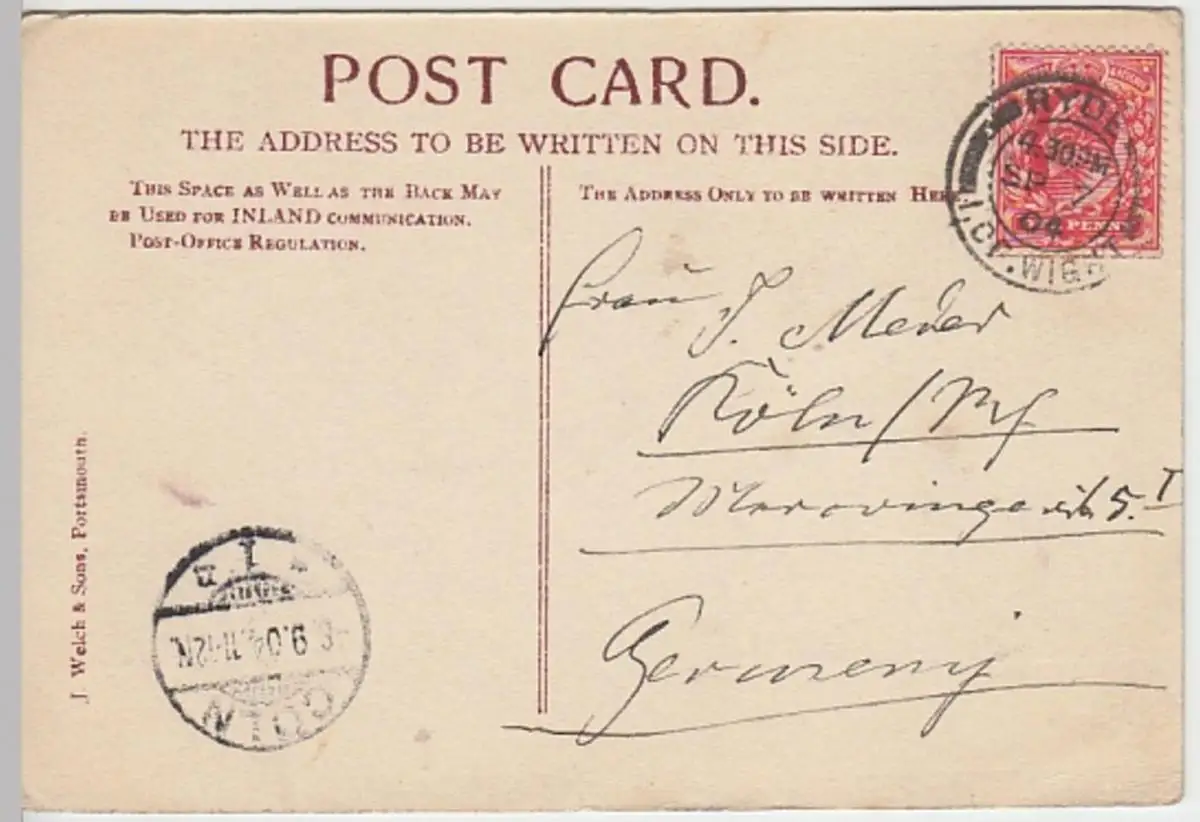 POST CARD.
THE ADDRESS TO BE WRITTEN ON THIS SIDE.
THIS SPACE AS WELL AS THE BACK MAY
BE USED FOR INLAND COMMUNICATION.
POST-OFFICE REGULATION.
THE ADDRESS ONLY TO BE WRITTEN
RYDE
4.30PM
SP 7
04
I. OF. WIGHT
PENNY
Frau J. Meder
Köln/Rh
5. I
Germany
J. Welch & Sons, Portsmouth.
CÖLN
9.04.11-12N.
1